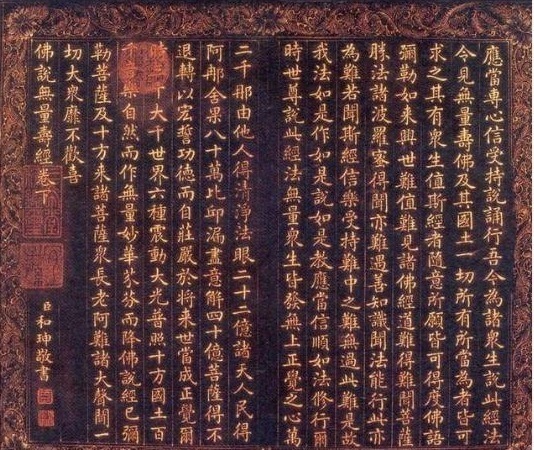 應當專心信受持說誦行吾今為諸眾生說此經法
令見無量壽佛及其國土一切所有所當為者皆可
求之其有眾生值斯經者隨意所願皆可得度佛語
彌勒如來興世難值難見諸佛經道難得難聞菩薩
勝法諸波羅蜜得聞亦難遇善知識聞法能行此亦
為難若聞斯經信樂受持難中之難無過此難是故
我法如是作如是說如是教應當信順如法修行爾
時世尊說此經法無量眾生皆發無上正覺之心萬
二千那由他人得清淨法眼二十二億諸天人民得
阿那含果八十萬比邱漏盡意解四十億菩薩得不
退轉以宏誓功德而自莊嚴於將來世當成正覺爾
時三千大千世界六種震動大光普照十方國土百
千音樂自然而作無量妙華芬芬而降佛說經已彌
勒菩薩及十方來諸菩薩眾長老阿難諸大聲聞一
切大眾靡不歡喜
佛說無量壽經卷下
臣和珅敬書